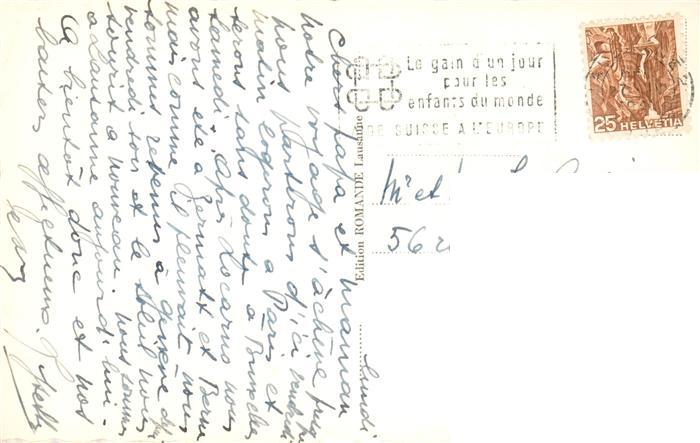 Lundi
Chers Papa et Maman
Notre voyage s'achève puis
nous partirons d'ici vendredi
matin logerons à Paris et
serons sans doute à Bruxelles
samedi. Après Locarno nous
avons été à Zermatt et Berne
mais comme il pleuvait nous
sommes revenus à Genève dès
vendredi soir et le soleil nous
sourit à nouveau. Nous sommes
à Lausanne aujourd'hui
A bientôt donc et nos
baisers affectueux.
Edition ROMANDE Lausanne
Le gain d'un jour
pour les
enfants du monde
DE SUISSE A L'EUROPE
25 HELVETIA
M et
56